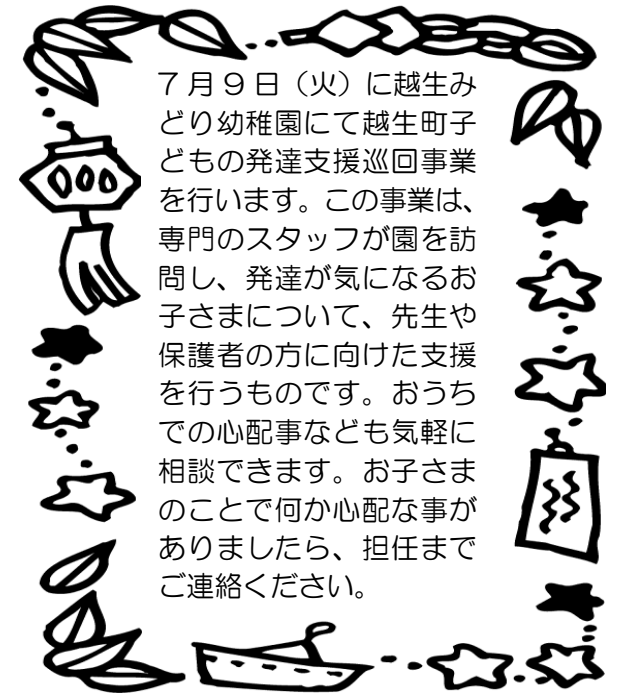 7月9日（火）に越生み
どり幼稚園にて越生町子
どもの発達支援巡回事業
を行います。この事業は、
専門のスタッフが園を訪
問し、発達が気になるお
子さまについて、先生や
保護者の方に向けた支援
を行うものです。おうち
での心配事なども気軽に
相談できます。お子さま
のことで何か心配な事が
ありましたら、担任まで
ご連絡ください。